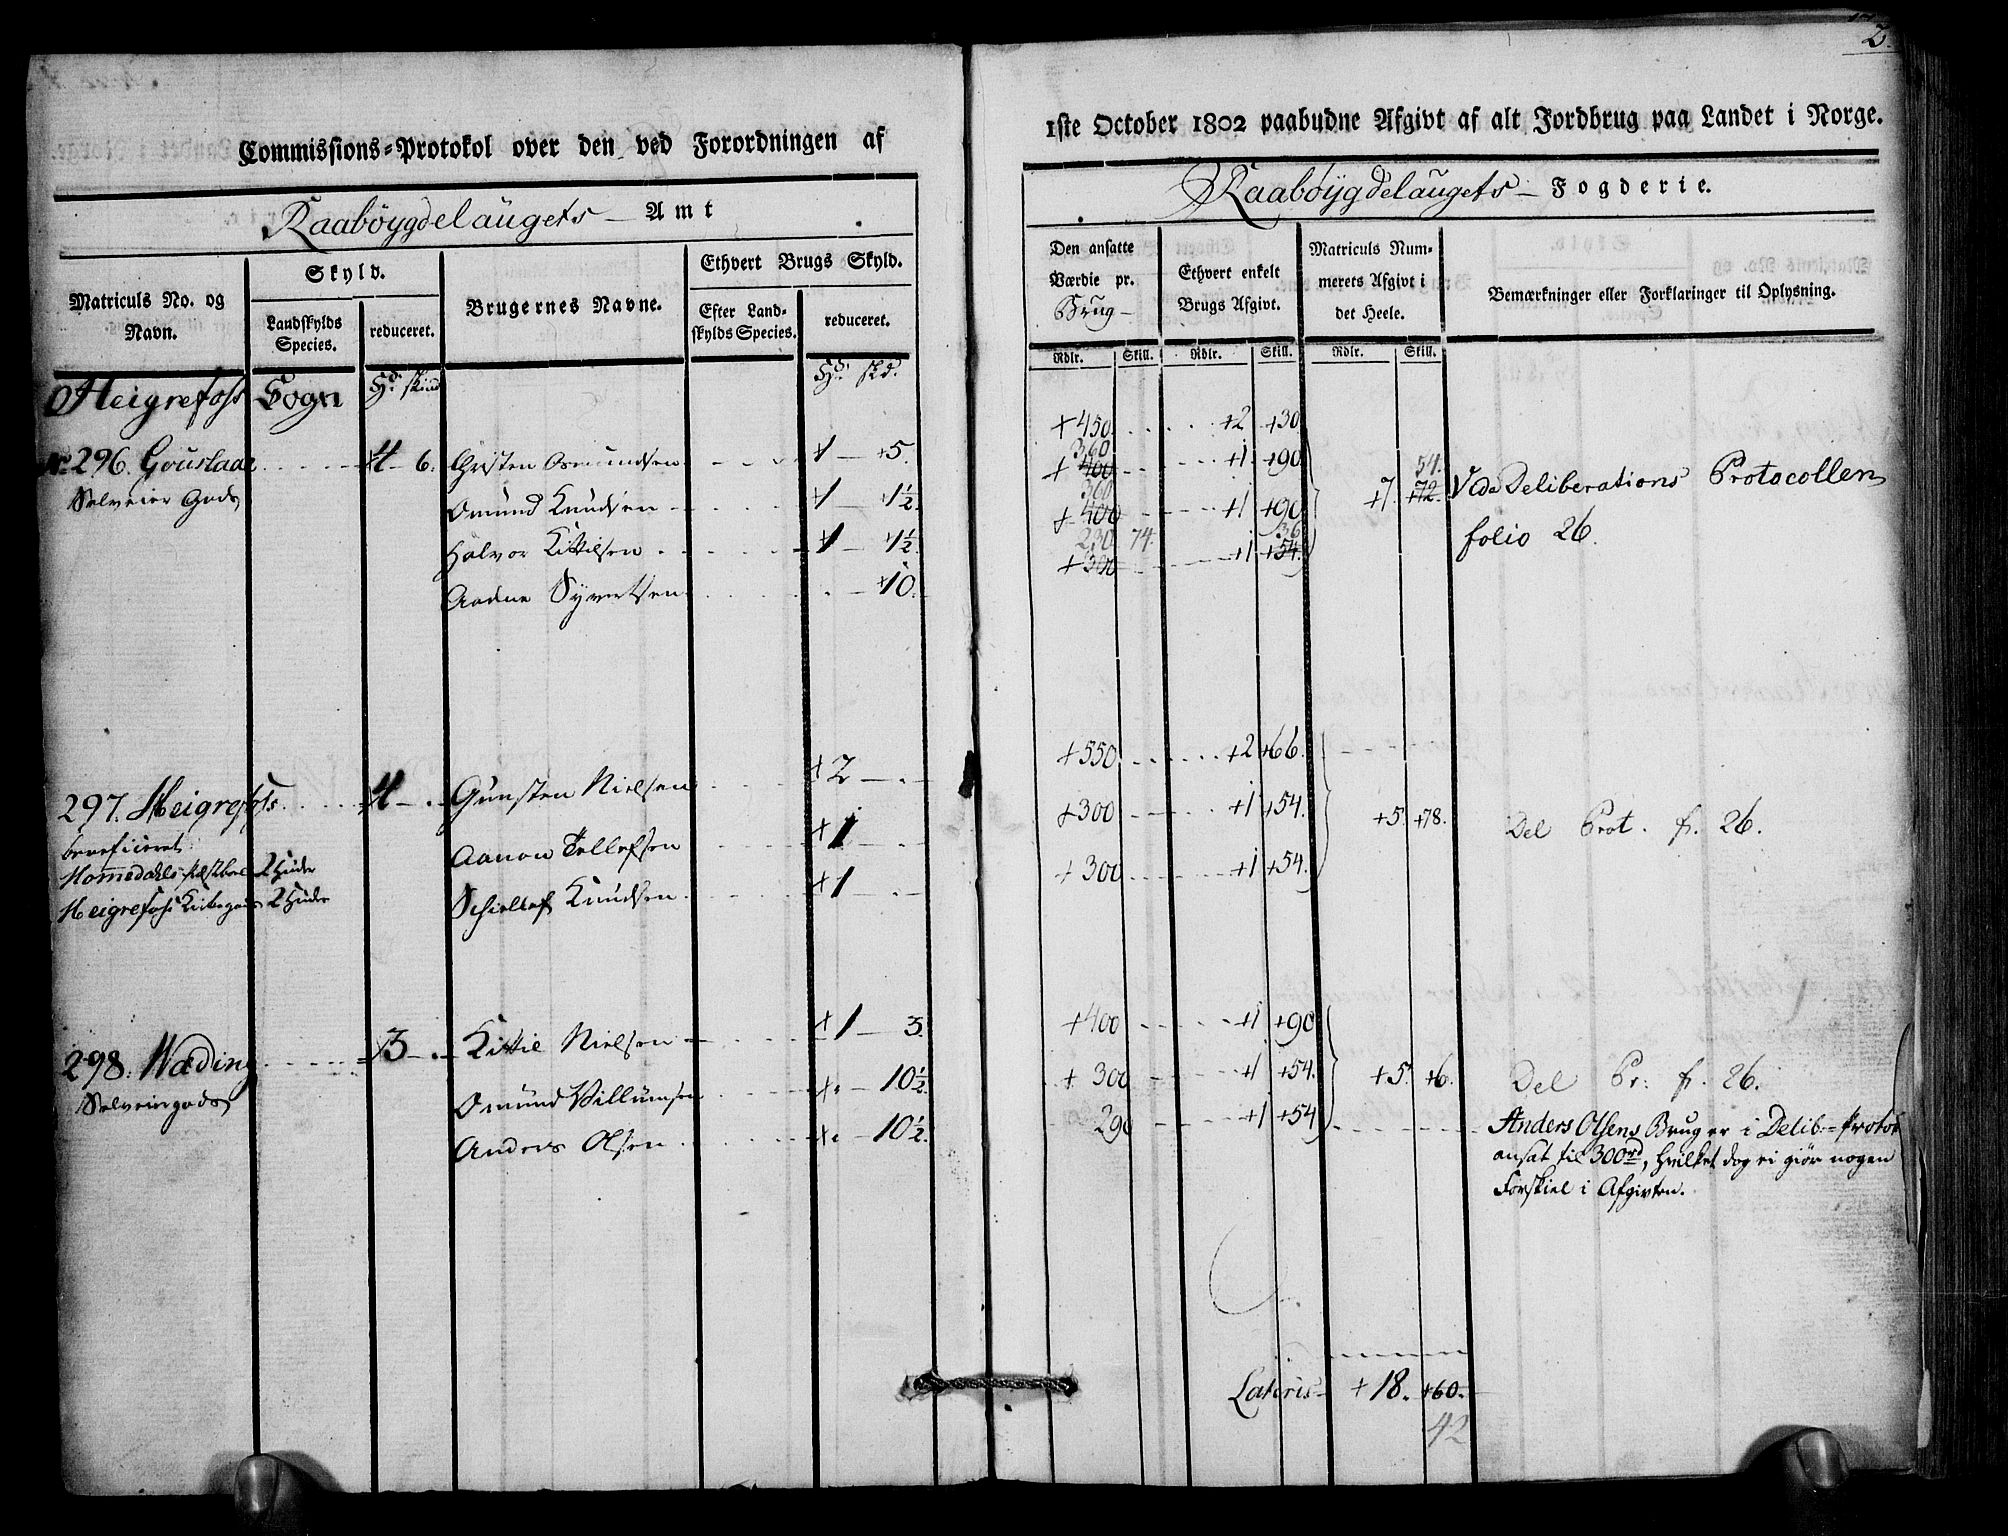 2.
Commissions-Protokol over den ved Forordningen af
1ste October 1802 paabudne Afgivt af alt Jordbrug paa Landet i Norge.
Raabøygdelaugets Amt
Raabøygdelaugets Fogderie.
Matriculs No. og Navn.
Skyld.
Landskylds Species.
reduceret.
Brugernes Navne.
Ethvert Brugs Skyld.
Efter Landskylds Species.
reduceret.
Den ansatte Værdie pr. Brug
Ethvert enkelt Brugs Afgivt.
Matriculs Nummerets Afgivt i det Heele.
Bemærkninger eller Forklaringer til Oplysning.
Rdlr. Skill. Rdlr. Skill. Rdlr. Skill.
Heigrefoss Sogn Hd. skind Hd. skd.
No 296. Gouslaae 4 - 6. Christen Osmundsen +1 - +5. +450 +2 +30
Selveier Gods Omund Knudsen +1 +1½. 360 +400 +1 +90
Halvor Kittilsen +1 - +1½. 360 +400 +1 +90
Aadne Syvertsen +10. 230 74. +300 +1 36 +54.
+7 54. +72. Vide Deliberations Protocollen
folio 26.
297. Heigrefoss 4 - . Gunsten Nielsen +2 - . +550 +2 +66.
beneficeret Aanon Tellefsen +1 - . +300 +1 +54. +5. +78. Del Prot. f. 26.
2 Huder
Heigrefoss Kirkegods 2 Huder Schiellef Knudsen +1 - . +300 +1 +54.
298. Wæding +3 - . Kittil Nielsen +1 - 3. +400 +1 +90
Selveiergods Omund Villumsen 10½. +300 +1 +54. +5. +6. Del Pr: f. 26.
Anders Olsen 10½. 290 +1 +54
Anders Olsens Brug er i Delib:-Protoc
ansat til 300rd, hvilket dog ei giør nogen
Forskiel i Afgivten.
Lateris +18. +60.
42